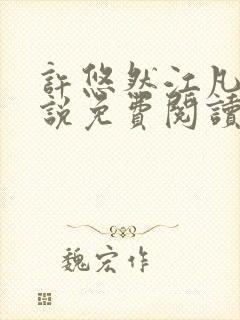 許悠然江凡
說免費閱讀
魏宏作